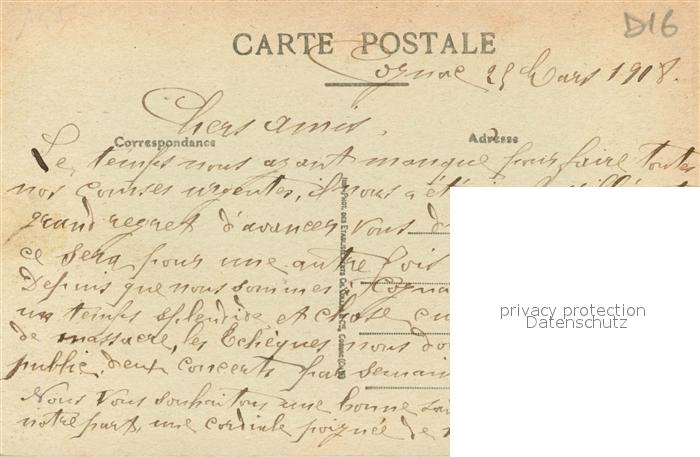 D16
CARTE POSTALE
Cognac 25 Mars 1918.
Chers amis,
Correspondance
Adresse
Le temps nous ayant manqué pour faire toutes
nos courses urgentes, il nous a été
grand regret d'avancer vous
ce sera pour une autre fois
Depuis que nous sommes à Cognac
un temps splendide et chose
de massacre, les Tchèques nous
public, deux concerts par semain
Nous vous souhaitons une bonne
notre part, une cordiale poignée de
PHOT. DES ETABLISSEMENTS
privacy protection
Datenschutz